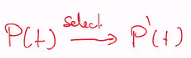 P(t) select → P'(t)